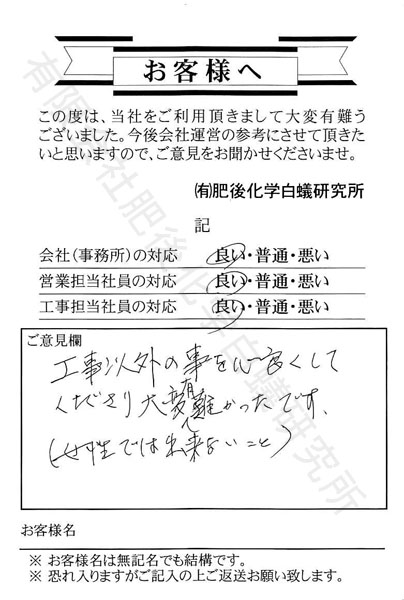 お客様へ
この度は、当社をご利用頂きまして大変有難う
ございました。今後会社運営の参考にさせて頂きた
いと思いますので、ご意見をお聞かせくださいませ。
㈲肥後化学白蟻研究所
記
会社(事務所)の対応 良い・普通・悪い
営業担当社員の対応 良い・普通・悪い
工事担当社員の対応 良い・普通・悪い
ご意見欄
工事以外の事を心良くして
くださり大変有難かったです、
(女性では出来ないこと)
お客様名
※ お客様名は無記名でも結構です。
※ 恐れ入りますがご記入の上ご返送お願い致します。
有限会社肥後化学白蟻研究所